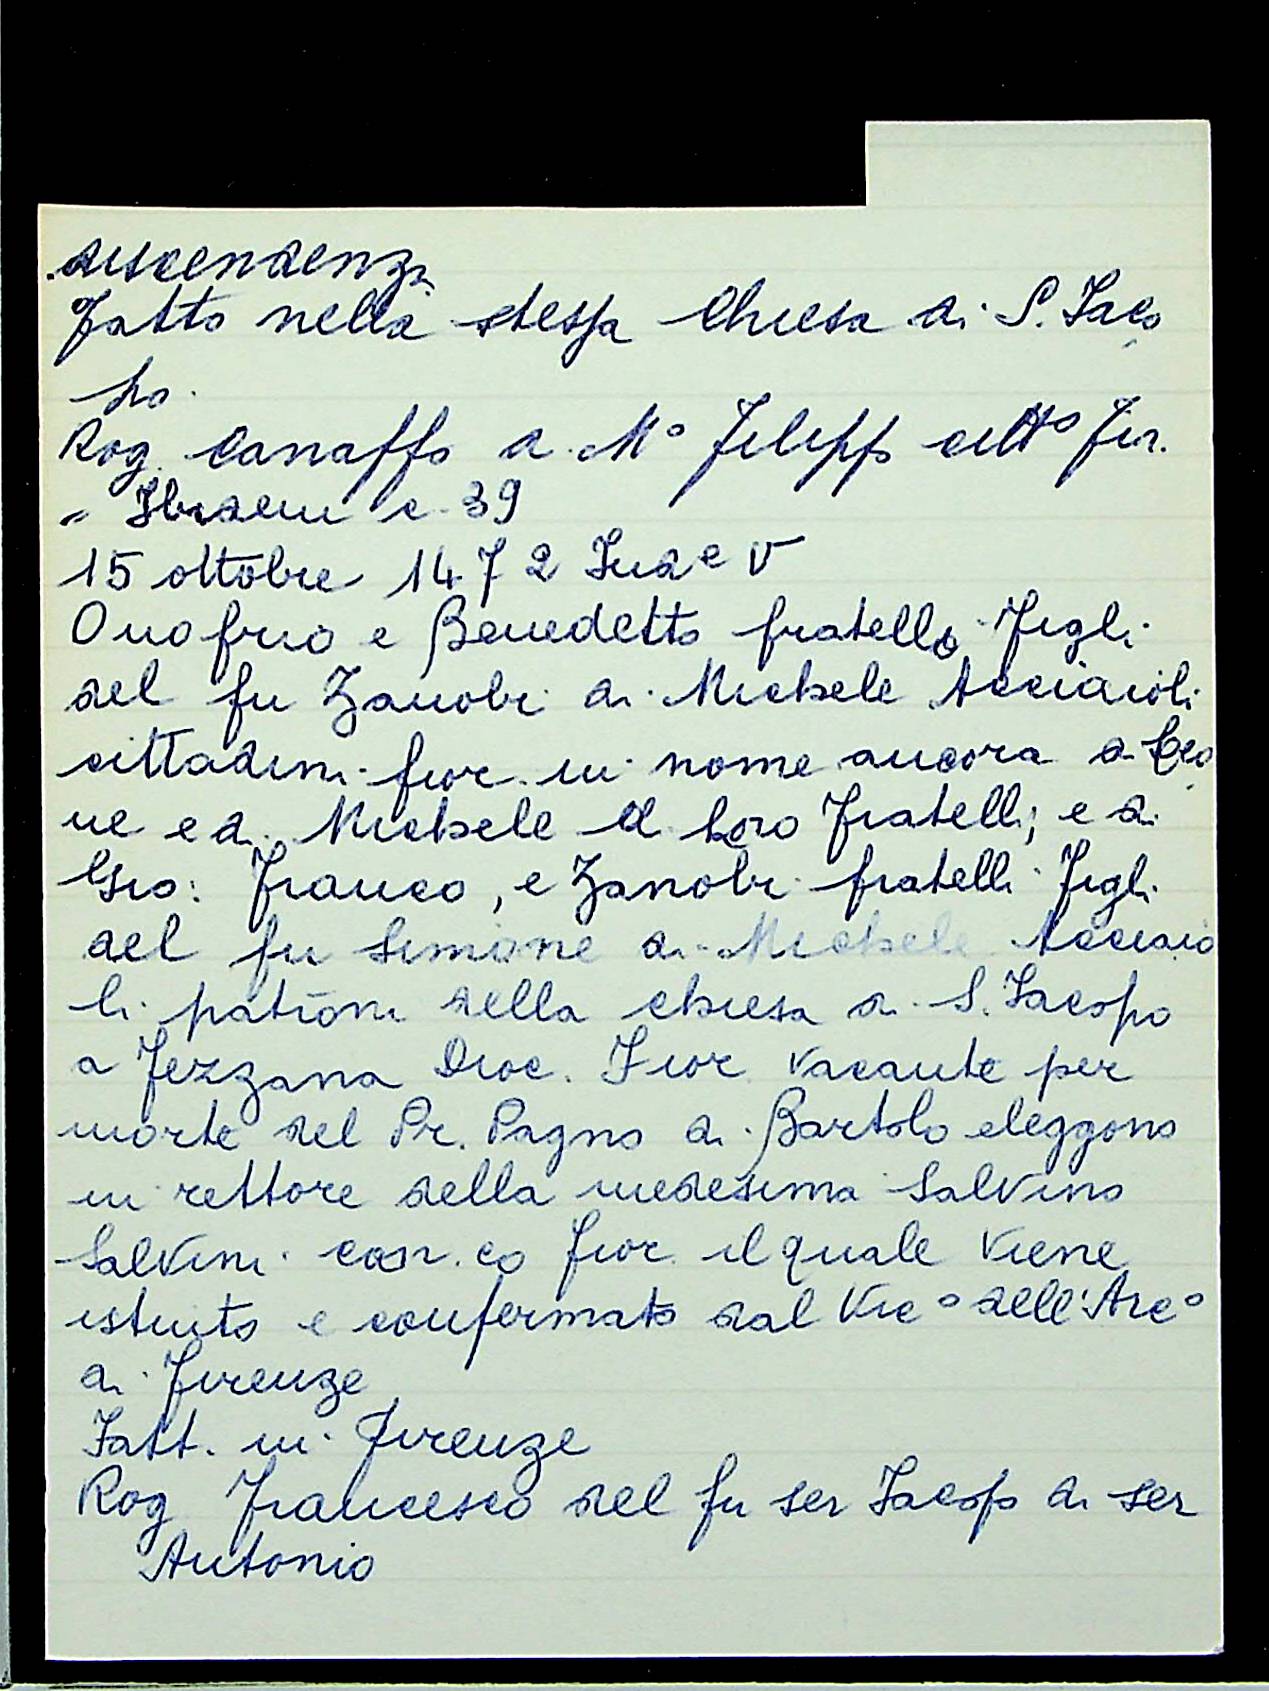 discendenza
Fatto nella stessa Chiesa di S. Iaco
po.
Rog. Canaffo di M° Filippo citt° Fir.
" Ibidem c. 39
15 ottobre 1472 Ind e V
Onofrio e Benedetto fratello figli
del fu Zanobi di Michele Acciaioli
cittadini fior. in nome ancora di Leo
ne e di Michele di loro fratelli; e di
Gio: Franco, e Zanobi fratelli figli
del fu Simone di Michele Acciaio
li patroni della chiesa di S. Iacopo
a Fezzana Dioc. Fior. vacante per
morte del Pr. Pagno di Bartolo eleggono
in rettore della medesima Salvino
Salvini can.co fior. il quale viene
istuito e confermato dal Vic° dell'Arc°
di Firenze
Fatt. in Firenze
Rog Francesco del fu ser Iacopo di ser
Antonio